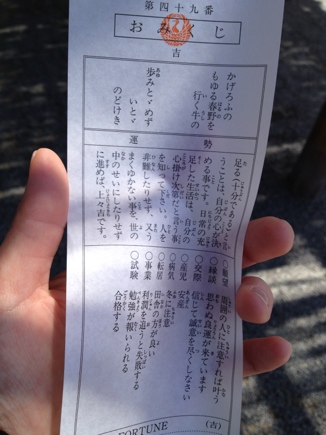 第四十九番
おみくじ
吉
かげろふの
もゆる春野を
行く牛の
歩みとゞめず
いとゞ
のどけき
運勢
足る（十分である）とい
うことは、自分の心が決
める事です。日常の充
足した生活は、自分の
心掛け次第だと言う事
を知って下さい。人を
非難したりせず、又う
まくゆかない事を、世の
中のせいにしたりせず
に進めば、上々吉です。
○願望 周囲の人に注意すれば叶う
○縁談 思わぬ良運が来ています
○交際 信じて誠意を尽くしなさい
○産児 安産
○病気 冬に注意
○転居 田舎の方が良い
○事業 利潤を追うと失敗する
○試験 勉強が報いられる
合格する
(吉)
FORTUNE